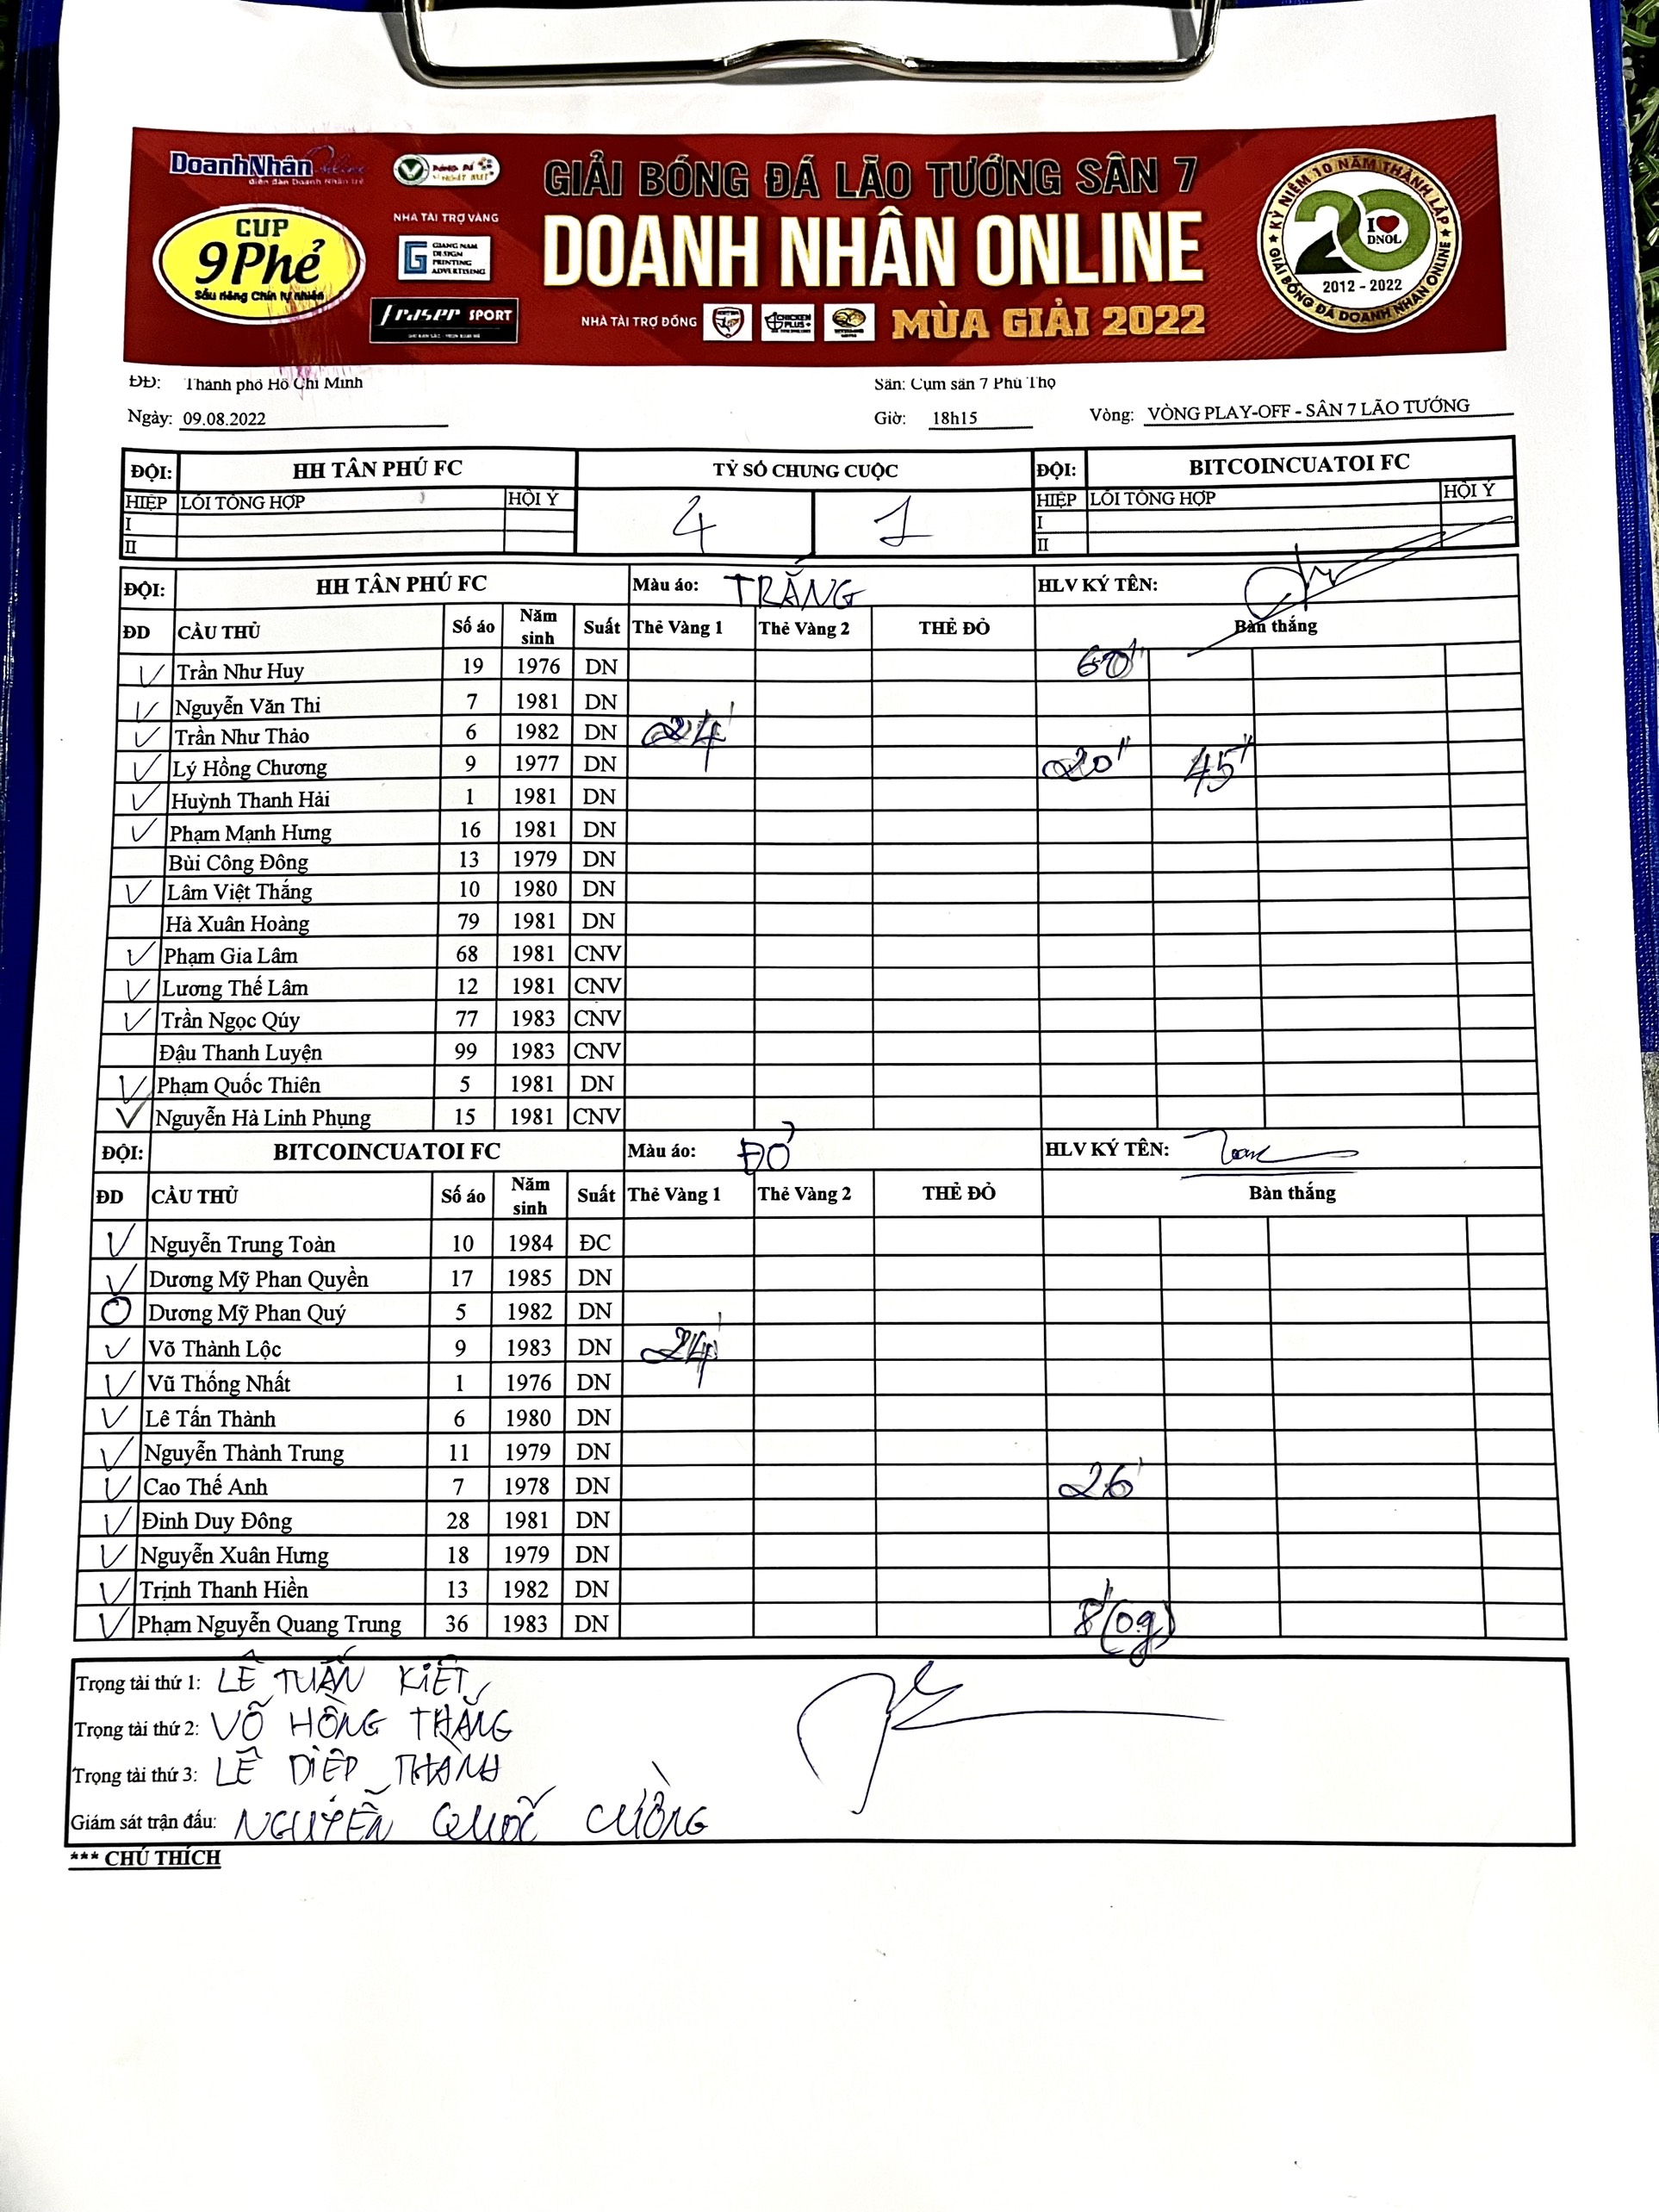 DoanhNhân Online
diễn đàn Doanh Nhân trẻ
GIẢI BÓNG ĐÁ LÃO TƯỚNG SÂN 7
DOANH NHÂN ONLINE
MÙA GIẢI 2022
CUP
9Phẻ
Sầu riêng Chín tự nhiên
NHÀ TÀI TRỢ VÀNG
GIANG NAM
DESIGN
PRINTING
ADVERTISING
fraser SPORT
NHÀ TÀI TRỢ ĐỒNG
CHICKEN PLUS+
KỶ NIỆM 10 NĂM THÀNH LẬP
20
I ❤ DNOL
2012 - 2022
GIẢI BÓNG ĐÁ DOANH NHÂN ONLINE
ĐĐ: Thành phố Hồ Chí Minh Sân: Cụm sân 7 Phú Thọ
Ngày: 09.08.2022 Giờ: 18h15 Vòng: VÒNG PLAY-OFF - SÂN 7 LÃO TƯỚNG
ĐỘI: HH TÂN PHÚ FC TỶ SỐ CHUNG CUỘC ĐỘI: BITCOINCUATOI FC
HIỆP LỖI TỔNG HỢP HỘI Ý 4 1 HIỆP LỖI TỔNG HỢP HỘI Ý
I I
II II
ĐỘI: HH TÂN PHÚ FC Màu áo: TRẮNG HLV KÝ TÊN:
ĐD CẦU THỦ Số áo Năm sinh Suất Thẻ Vàng 1 Thẻ Vàng 2 THẺ ĐỎ Bàn thắng
Trần Như Huy 19 1976 DN 60'
Nguyễn Văn Thi 7 1981 DN
Trần Như Thảo 6 1982 DN 24'
Lý Hồng Chương 9 1977 DN 20' 45'
Huỳnh Thanh Hải 1 1981 DN
Phạm Mạnh Hưng 16 1981 DN
Bùi Công Đông 13 1979 DN
Lâm Việt Thắng 10 1980 DN
Hà Xuân Hoàng 79 1981 DN
Phạm Gia Lâm 68 1981 CNV
Lương Thế Lâm 12 1981 CNV
Trần Ngọc Qúy 77 1983 CNV
Đậu Thanh Luyện 99 1983 CNV
Phạm Quốc Thiên 5 1981 DN
Nguyễn Hà Linh Phụng 15 1981 CNV
ĐỘI: BITCOINCUATOI FC Màu áo: ĐỎ HLV KÝ TÊN:
ĐD CẦU THỦ Số áo Năm sinh Suất Thẻ Vàng 1 Thẻ Vàng 2 THẺ ĐỎ Bàn thắng
Nguyễn Trung Toàn 10 1984 ĐC
Dương Mỹ Phan Quyền 17 1985 DN
Dương Mỹ Phan Quý 5 1982 DN
Võ Thành Lộc 9 1983 DN 24'
Vũ Thống Nhất 1 1976 DN
Lê Tấn Thành 6 1980 DN
Nguyễn Thành Trung 11 1979 DN
Cao Thế Anh 7 1978 DN 26'
Đinh Duy Đông 28 1981 DN
Nguyễn Xuân Hưng 18 1979 DN
Trịnh Thanh Hiền 13 1982 DN
Phạm Nguyễn Quang Trung 36 1983 DN 8'(og)
Trọng tài thứ 1: LÊ TUẤN KIỆT
Trọng tài thứ 2: VÕ HỒNG THẮNG
Trọng tài thứ 3: LÊ DIỆP THÀNH
Giám sát trận đấu: NGUYỄN QUỐC CƯỜNG
*** CHÚ THÍCH